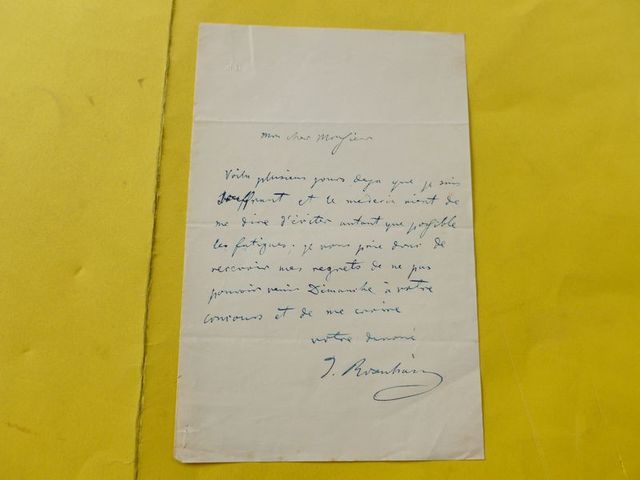 mon cher Monsieur
Voila plusieurs jours deja que je suis
souffrant et le medecin vient de
me dire d'éviter autant que possible
les fatigues; je vous prie donc de
recevoir mes regrets de ne pas
pouvoir venir Dimanche à votre
concours et de me croire
votre devoué
J. Rosenhain